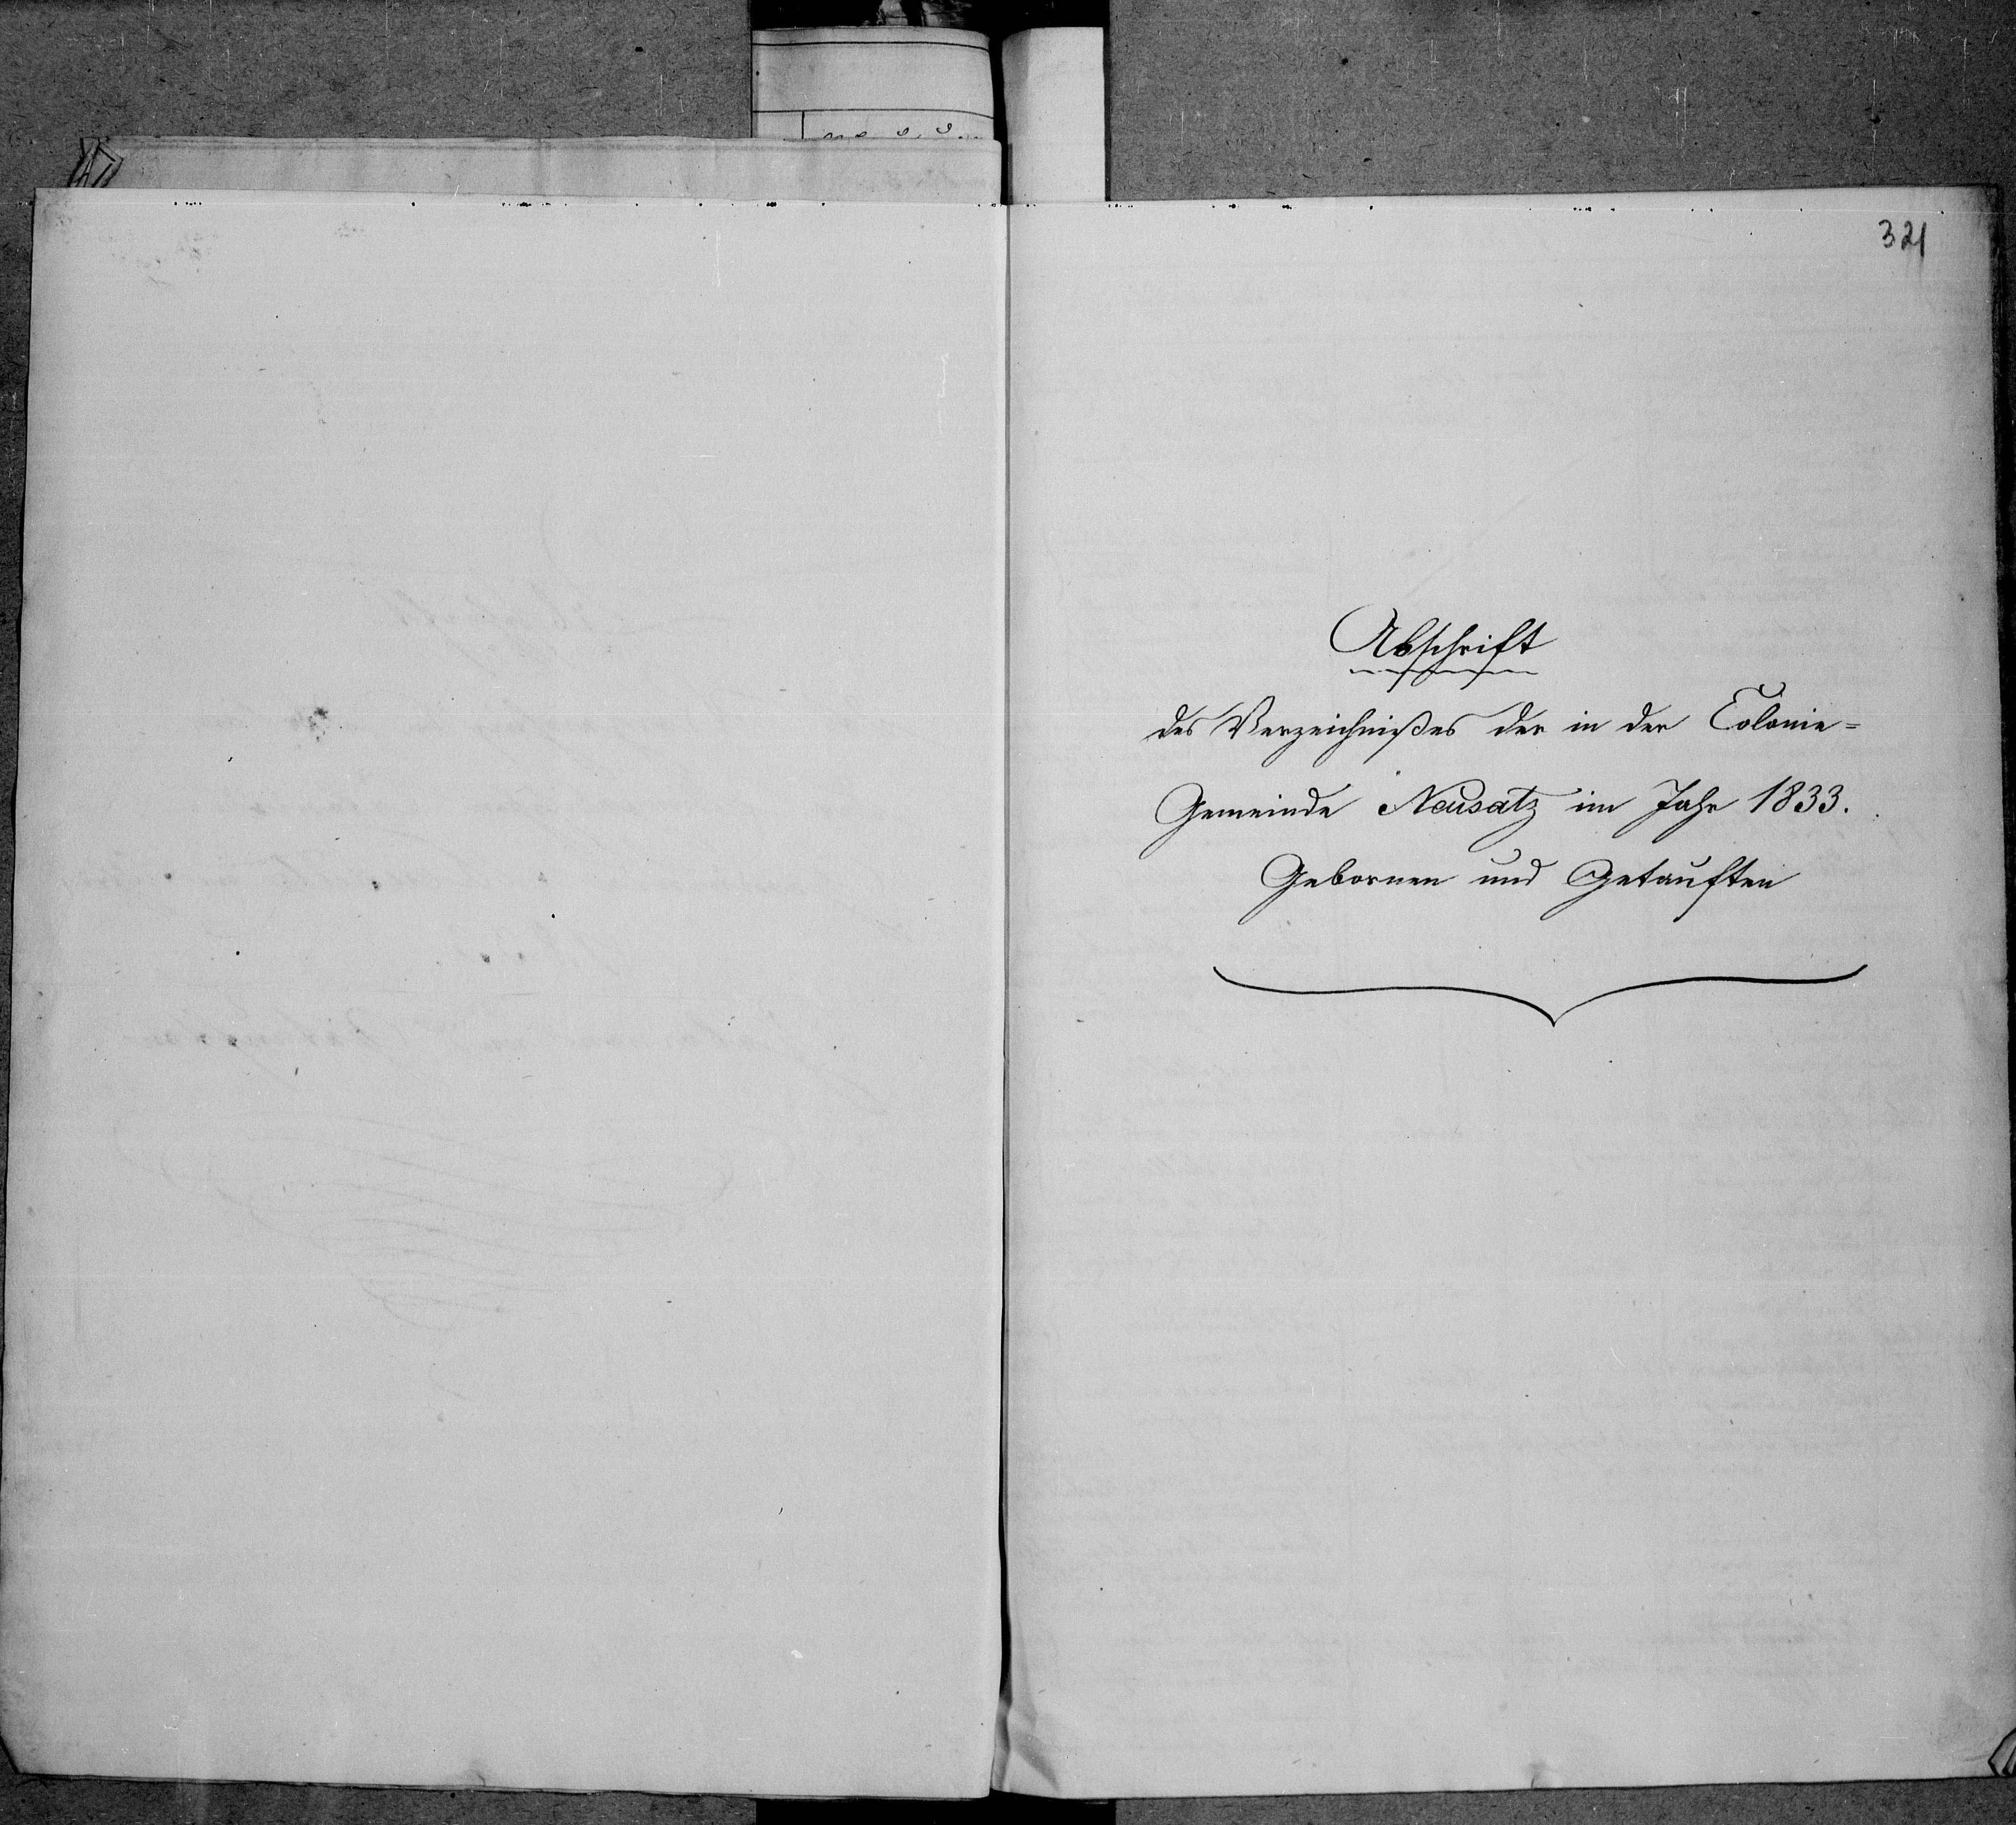 321
Abschrift
des Verzeichnißes der in der Colonie=
Gemeinde Neusatz im Jahr 1833.
Gebornen und Getauften